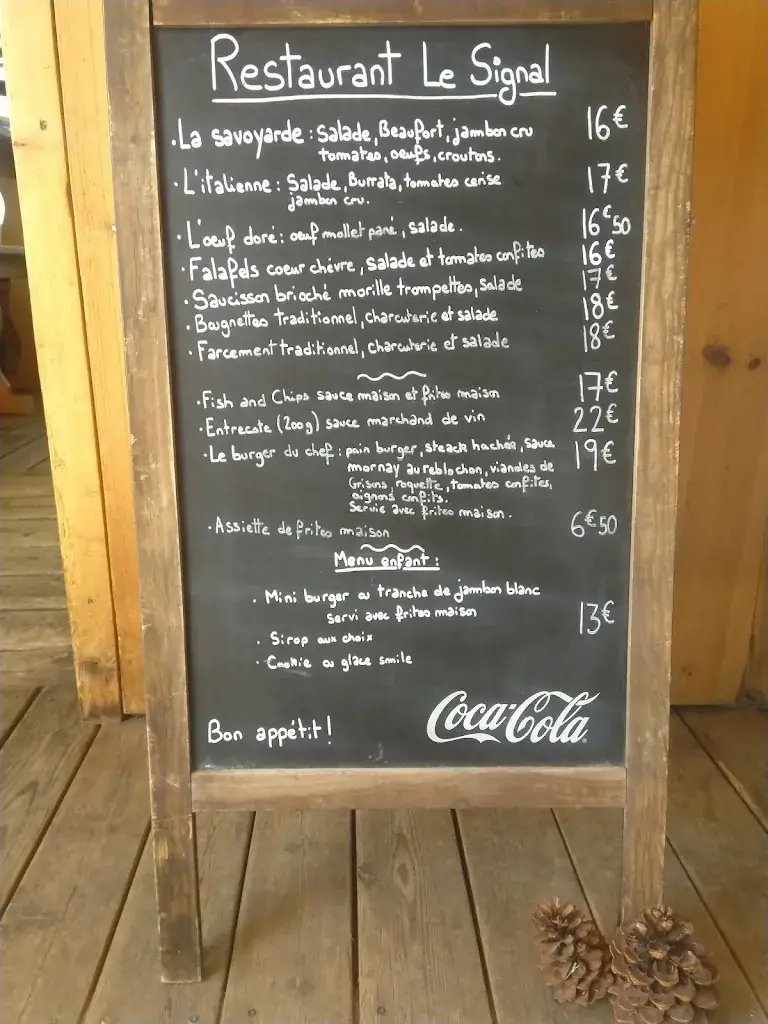 Restaurant Le Signal
· La savoyarde : Salade, Beaufort, jambon cru 16€
tomates, oeufs, croutons.
· L'italienne : Salade, Burrata, tomates cerise 17€
jambon cru.
· L'oeuf doré : oeuf mollet pané, salade. 16€50
· Falafels coeur chèvre, salade et tomates confites 16€
· Saucisson brioché morille trompettes, salade 17€
· Beugnettes traditionnel, charcuterie et salade 18€
· Farcement traditionnel, charcuterie et salade 18€
· Fish and Chips sauce maison et frites maison 17€
· Entrecote (200g) sauce marchand de vin 22€
· Le burger du chef : pain burger, steack hachée, sauce 19€
mornay au reblochon, viandes de
Grisons, roquette, tomates confites,
oignons confits.
Servie avec frites maison.
· Assiette de frites maison 6€50
Menu enfant :
· Mini burger ou tranche de jambon blanc
servi avec frites maison 13€
· Sirop aux choix
· Cookie ou glace smile
Bon appétit !
Coca-Cola